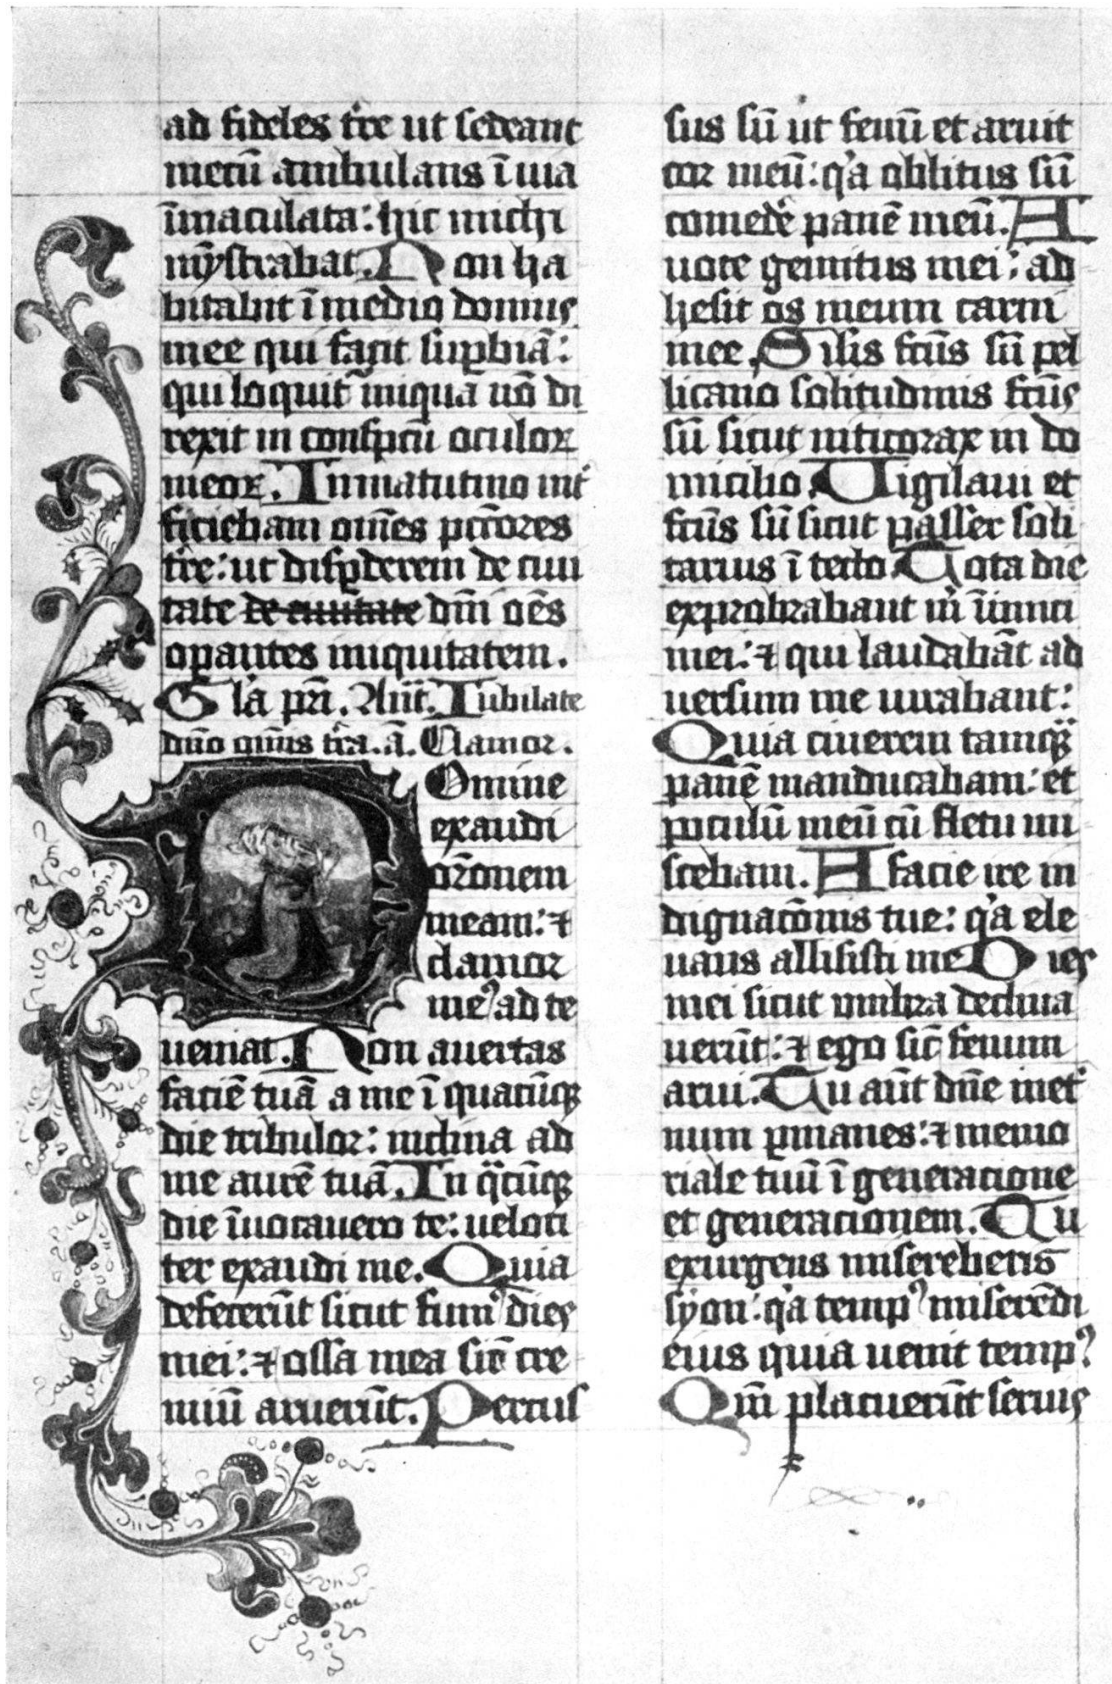 ad fideles t̄re ut sedeant
mecū ambulans ī uia
īmaculata: hic michi
mỹstrabat. Non ha
bitabit ī medio domus
mee qui facit suꝑbiā:
qui loquit᷑ iniqua nō di
rexit in conspc̄tu oculoꝝ
meoꝝ. In matutino int᷑
ficiebam om̄es pctōres
t̄re: ut disꝑderem de ciui
tate de ciuitate dm̄i oēs
oꝑantes iniquitatem.
Gl̄a pr̄i. Añt. Iubilate
dn̄o om̄is t̄ra. a. Clamor.
Domine
exaudi
or̄onem
meam: ⁊
clamor
meꝰ ad te
ueniat. Non auertas
faciē tuā a me ī quacūqꝫ
die tribulor: inclina ad
me aurē tuā. In qͣcūqꝫ
die īuocauero te: ueloci
ter exaudi me. Quia
defecerūt sicut fumꝰ dies
mei: ⁊ ossa mea sic̄ cre
miū aruerūt. Percus
sus sū ut fenū et aruit
cor meū: qͥa oblitus sū
comedē panē meū. A
uoce gemitus mei: ad
hesit os meum carni
mee. Silis fc̄us sū pel
licano solitudinis fc̄us
sū sicut niticorax in do
micilio. Uigilaui et
fc̄us sū sicut passer soli
tarius ī tecto. Tota die
exprobrabant m̄ inimici
mei: ⁊ qui laudabāt ad
uersum me iurabant:
Quia cinerem tamqͣꝫ
panē manducabam: et
poculū meū cū fletu mi
scebam. A facie ire in
dignac̄onis tue: qͥa ele
uans allisisti me. Dies
mei sicut umbra declina
uerūt: ⁊ ego sic̄ fenum
arui. Tu aūt dn̄e inet᷑
num ꝑmanes: ⁊ memo
riale tuū ī generacione
et generacionem. Tu
exurgens misereberis
syon: qͥa tempꝰ miserēdi
eius quia uenit tempꝰ
Qm̄ placuerūt seruis